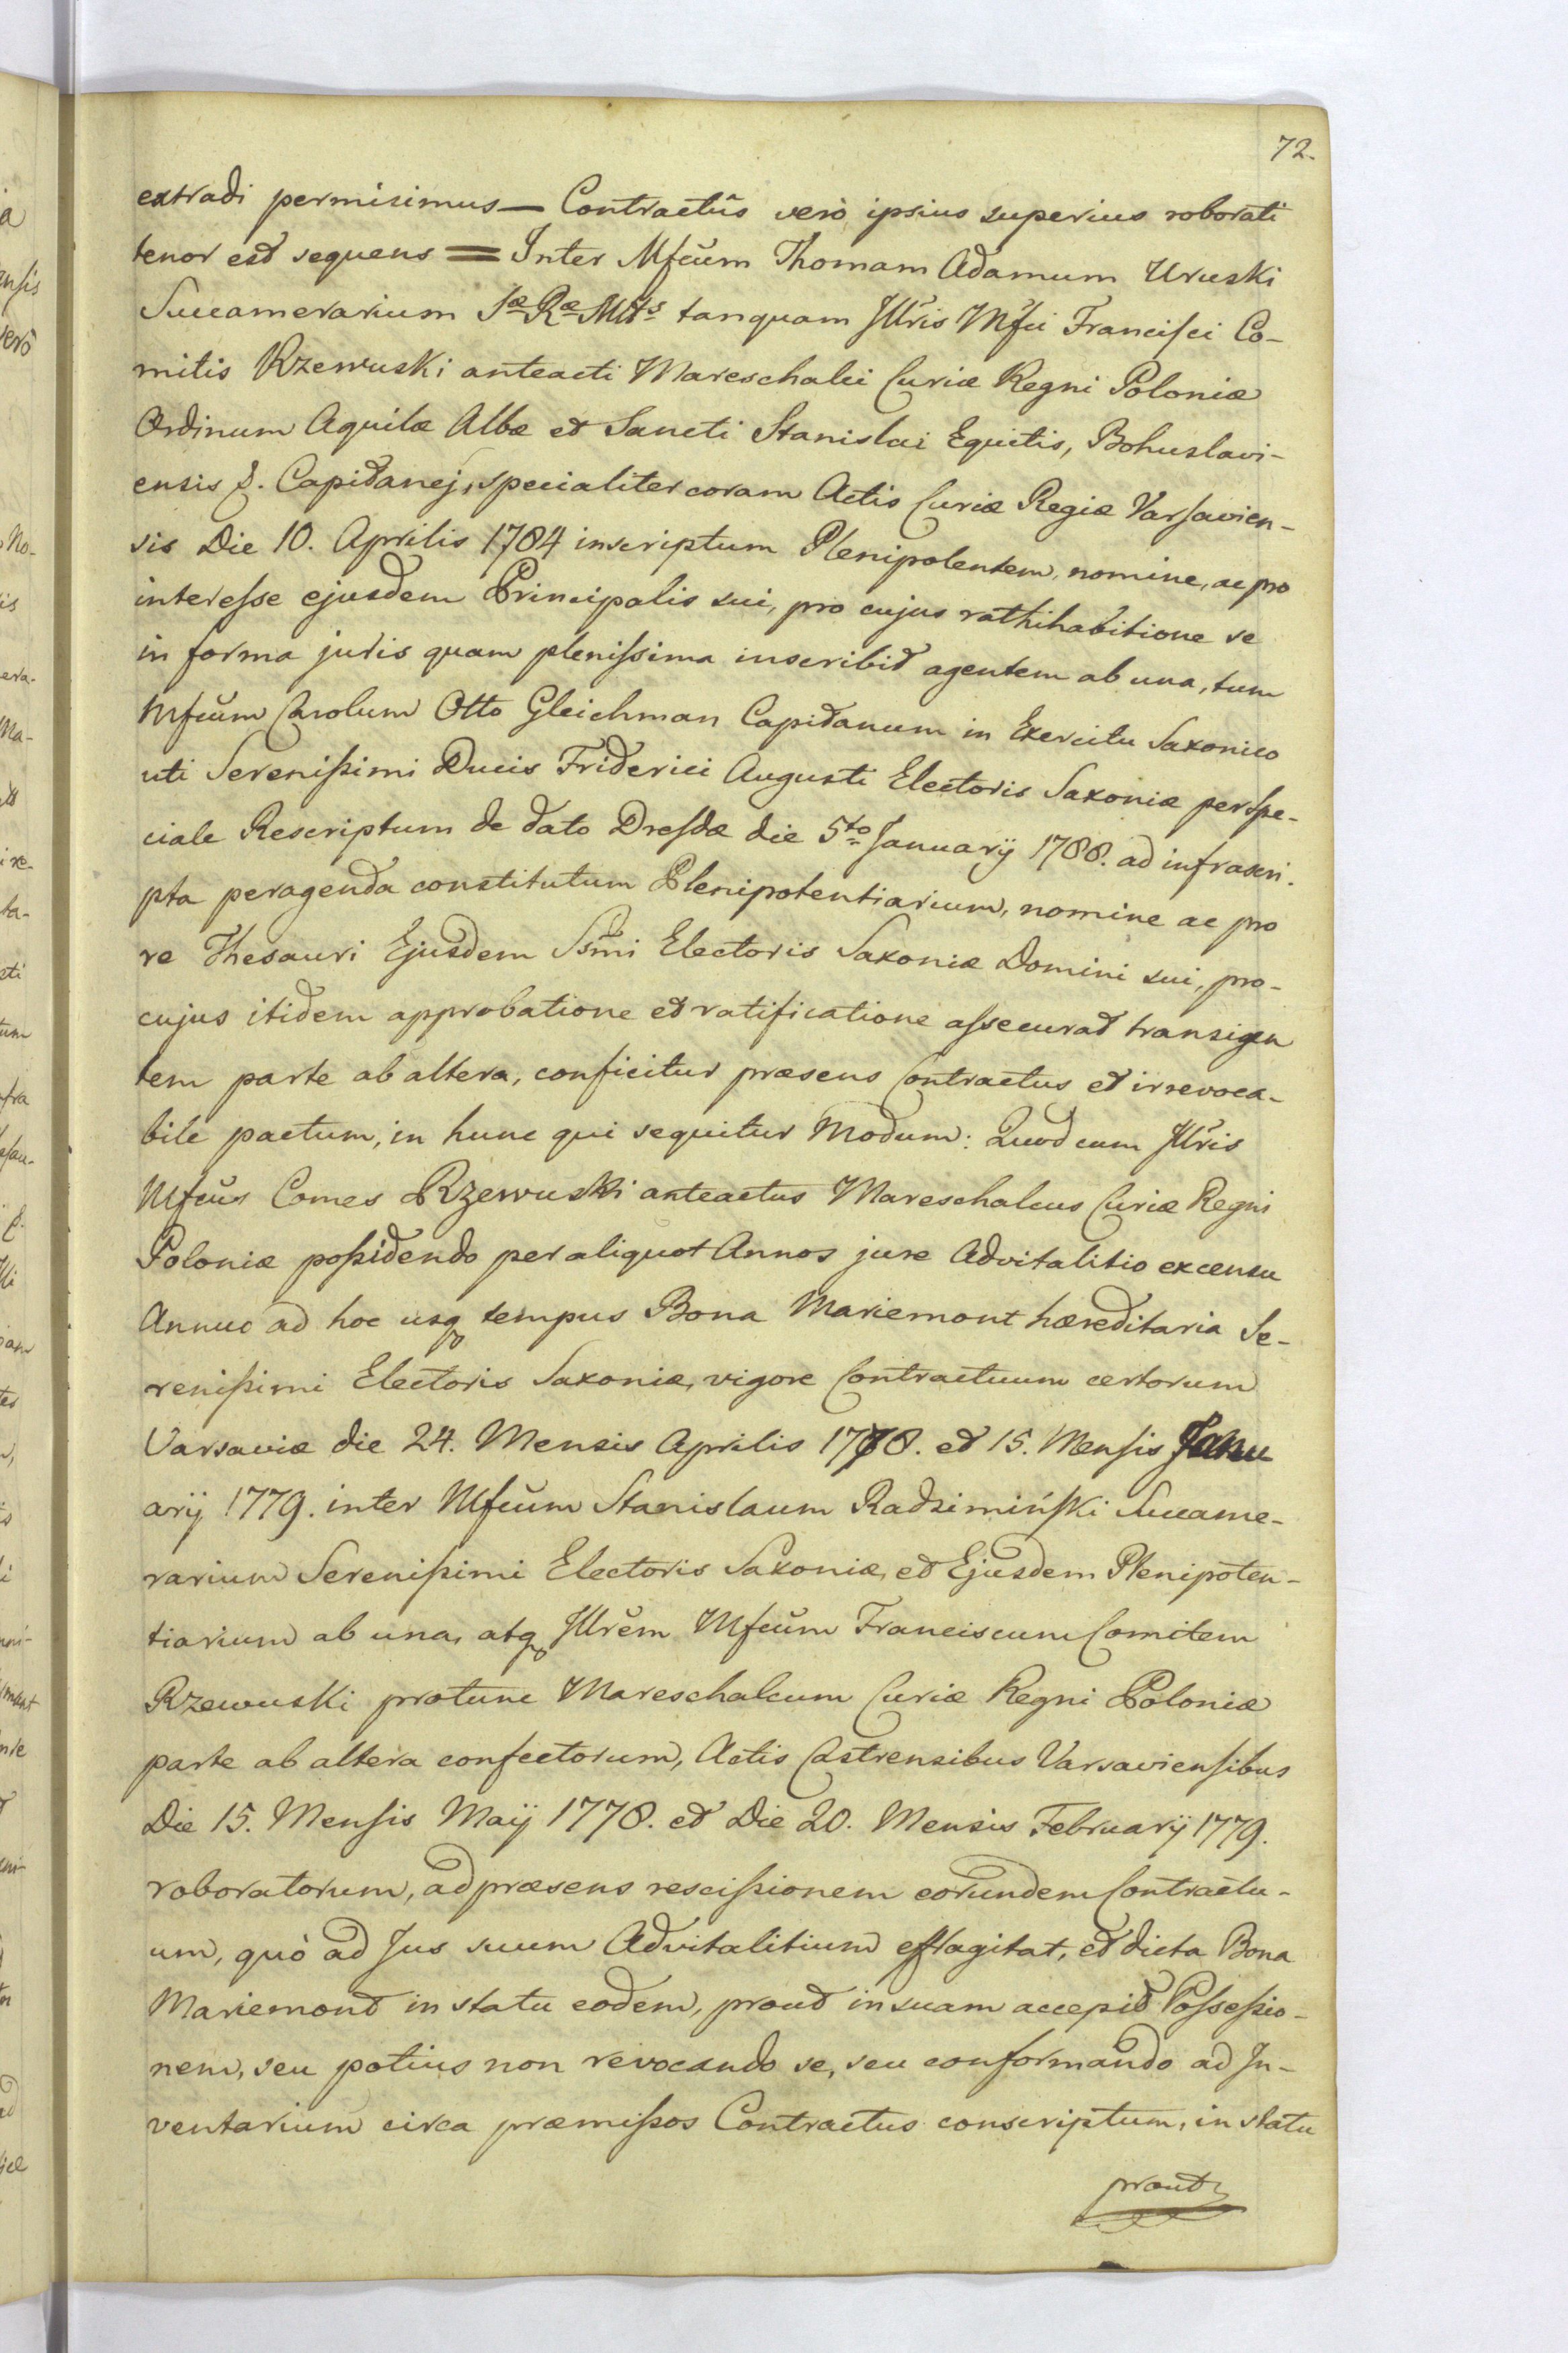 72.
extradi permisimus — Contractûs verò ipsius superius roborati
tenor est sequens = Inter Mfcum Thomam Adamum Uruski
Succamerarium Sæ Ræ Mttis tanquam Jllris Mfci Francisci Co-
mitis Rzewuski anteacti Mareschalci Curiæ Regni Poloniæ
Ordinum Aquilæ Albæ et Sancti Stanislai Equitis, Bohuslavi-
ensis &. Capitanej, specialiter coram Actis Curiæ Regiæ Varsavien-
sis Die 10. Aprilis 1784 inscriptum Plenipotentem, nomine, ac pro
interesse ejusdem Principalis sui, pro cujus rathihabitione se
in forma juris quam plenissima inscribit agentem ab una, tum
Mfcum Carolum Otto Gleichman Capitanum in Exercitu Saxonico
uti Serenissimi Ducis Friderici Augusti Electoris Saxoniæ per spe-
ciale Rescriptum de dato Dresdæ die 5to Januarij 1788. ad infrascri-
pta peragenda constitutum Plenipotentiarium, nomine ac pro
re Thesauri Ejusdem Ssmi Electoris Saxoniæ Domini sui, pro-
cujus itidem approbatione et ratificatione assecurat transigen
tem parte ab altera, conficitur præsens Contractus et irrevoca-
bile pactum, in hunc qui sequitur Modum: Quod cum Jllris
Mfcus Comes Rzewuski anteactus Mareschalcus Curiæ Regni
Poloniæ possidendo per aliquot Annos jure Advitalitio ex censu
Annuo ad hoc usq tempus Bona Mariemont hæreditaria Se-
renissimi Electoris Saxoniæ, vigore Contractuum certorum
Varsaviæ die 24. Mensis Aprilis 1778. et 15. Mensis Janu
arij 1779. inter Mfcum Stanislaum Radzimiński Succame-
rarium Serenissimi Electoris Saxoniæ, et Ejusdem Plenipoten-
tiarium ab una, atq Jllrem Mfcum Franciscum Comitem
Rzewuski protunc Mareschalcum Curiæ Regni Poloniæ
parte ab altera confectorum, Actis Castrensibus Varsaviensibus
Die 15. Mensis Maij 1778. et Die 20. Mensis Februarij 1779.
roboratorum, ad præsens rescissionem eorundem Contractu-
um, quò ad Jus suum Advitalitium efflagitat, et dicta Bona
Mariemont in statu eodem, prout in suam accepit Possessio-
nem, seu potius non revocando se, seu conformando ad In-
ventarium circa præmissos Contractus conscriptum, in statu
prout